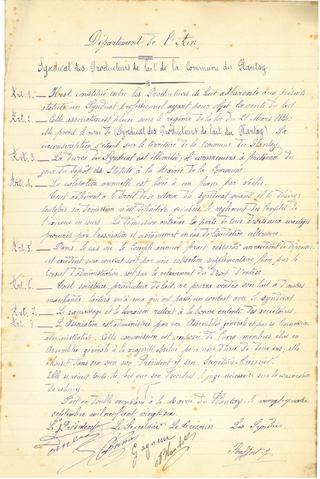 Département de l'Ain
Syndicat des Producteurs de lait de la Commune du Plantay
Art. 1. — Il est constitué entre les Producteurs de lait adhérents aux présents
statuts un Syndicat professionnel ayant pour objet la vente du lait
Art. 2. — Cette association est placée sous le régime de la loi du 21 Mars 1884
elle prend le nom de (Syndicat des Producteurs de lait du Plantay). Sa
circonscription s'étend sur le territoire de la commune du Plantay.
Art. 3. — La durée du Syndicat est illimitée; il commencera à fonctionner du
jour du dépôt des Statuts à la Mairie de la Commune.
Art. 4. — La cotisation annuelle est fixée à un franc par vache.
Tout adhérent a le Droit de se retirer du Syndicat quand il le désire
toutefois sa démission
l'année en cours. La démission entraîne la perte de tous droits aux avantages
procurés par l'association
Art. 5. — Dans le cas où le compte annuel ferait ressortir un excédent de dépenses
cet excédent sera couvert soit par une cotisation supplémentaire fixée par le
Conseil d'administration, soit par le relèvement du Droit d'entrée.
Art. 6. — Tout sociétaire, producteur de lait, ne pourra vendre son lait à d'autres
marchands laitiers qu'à ceux qui ont passé un contrat avec le syndicat.
Art. 7. — Le ramassage et la livraison restent à la bonne entente des sociétaires.
Art. 8. — L'Association est administrée par une Assemblée générale et par sa Commission
administrative. Cette commission est composée de Cinq membres élus en
Assemblée générale à la majorité absolue pour une durée de deux ans; elle
choisit dans son sein son Président et son Secrétaire-Trésorier.
Elle se réunit toutes les fois que son Président le juge nécessaire sur la convocation
de celui-ci.
Fait en double exemplaire à la Mairie du Plantay, le vingt-quatre
septembre mil neuf cent vingt six
Le Président Le Secrétaire Le Trésorier Les Syndics